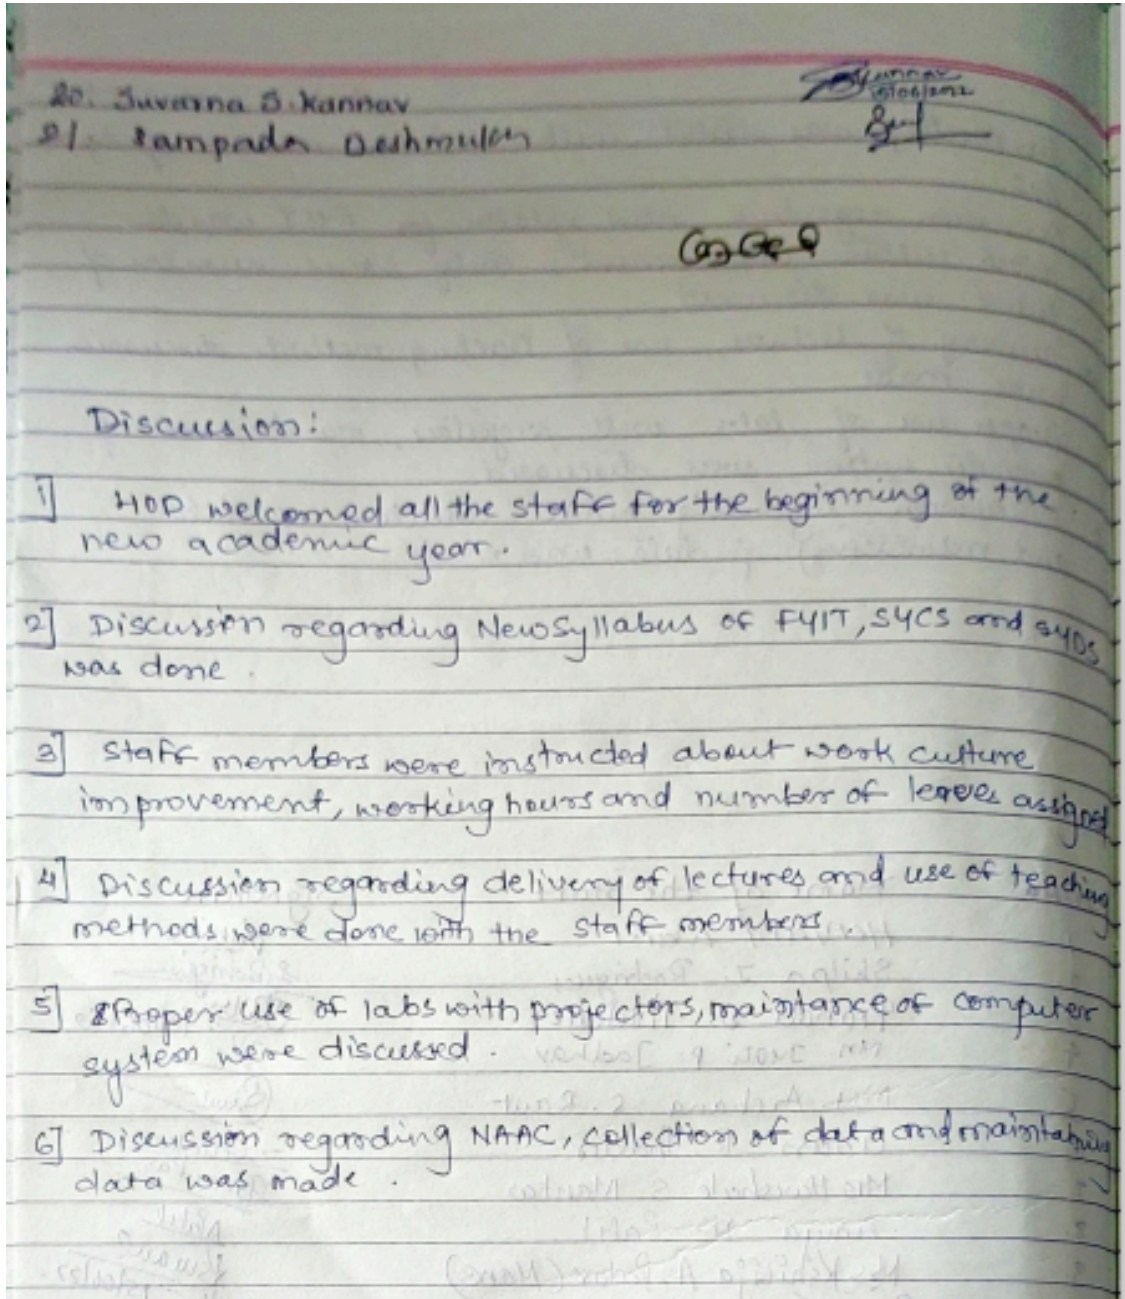 20. Suvarna S. Kannav
Kannav
15/06/2022
21. Sampada Deshmukh
Discussion:
1] HOD welcomed all the staff for the beginning of the
new academic year.
2] Discussion regarding New Syllabus of FYIT, SYCS and SYDS
was done.
3] Staff members were instructed about work culture
improvement, working hours and number of leaves assigned
4] Discussion regarding delivery of lectures and use of teaching
methods were done with the staff members.
5] Proper use of labs with projectors, maintance of computer
system were discussed.
6] Discussion regarding NAAC, collection of data and maintaining
data was made.